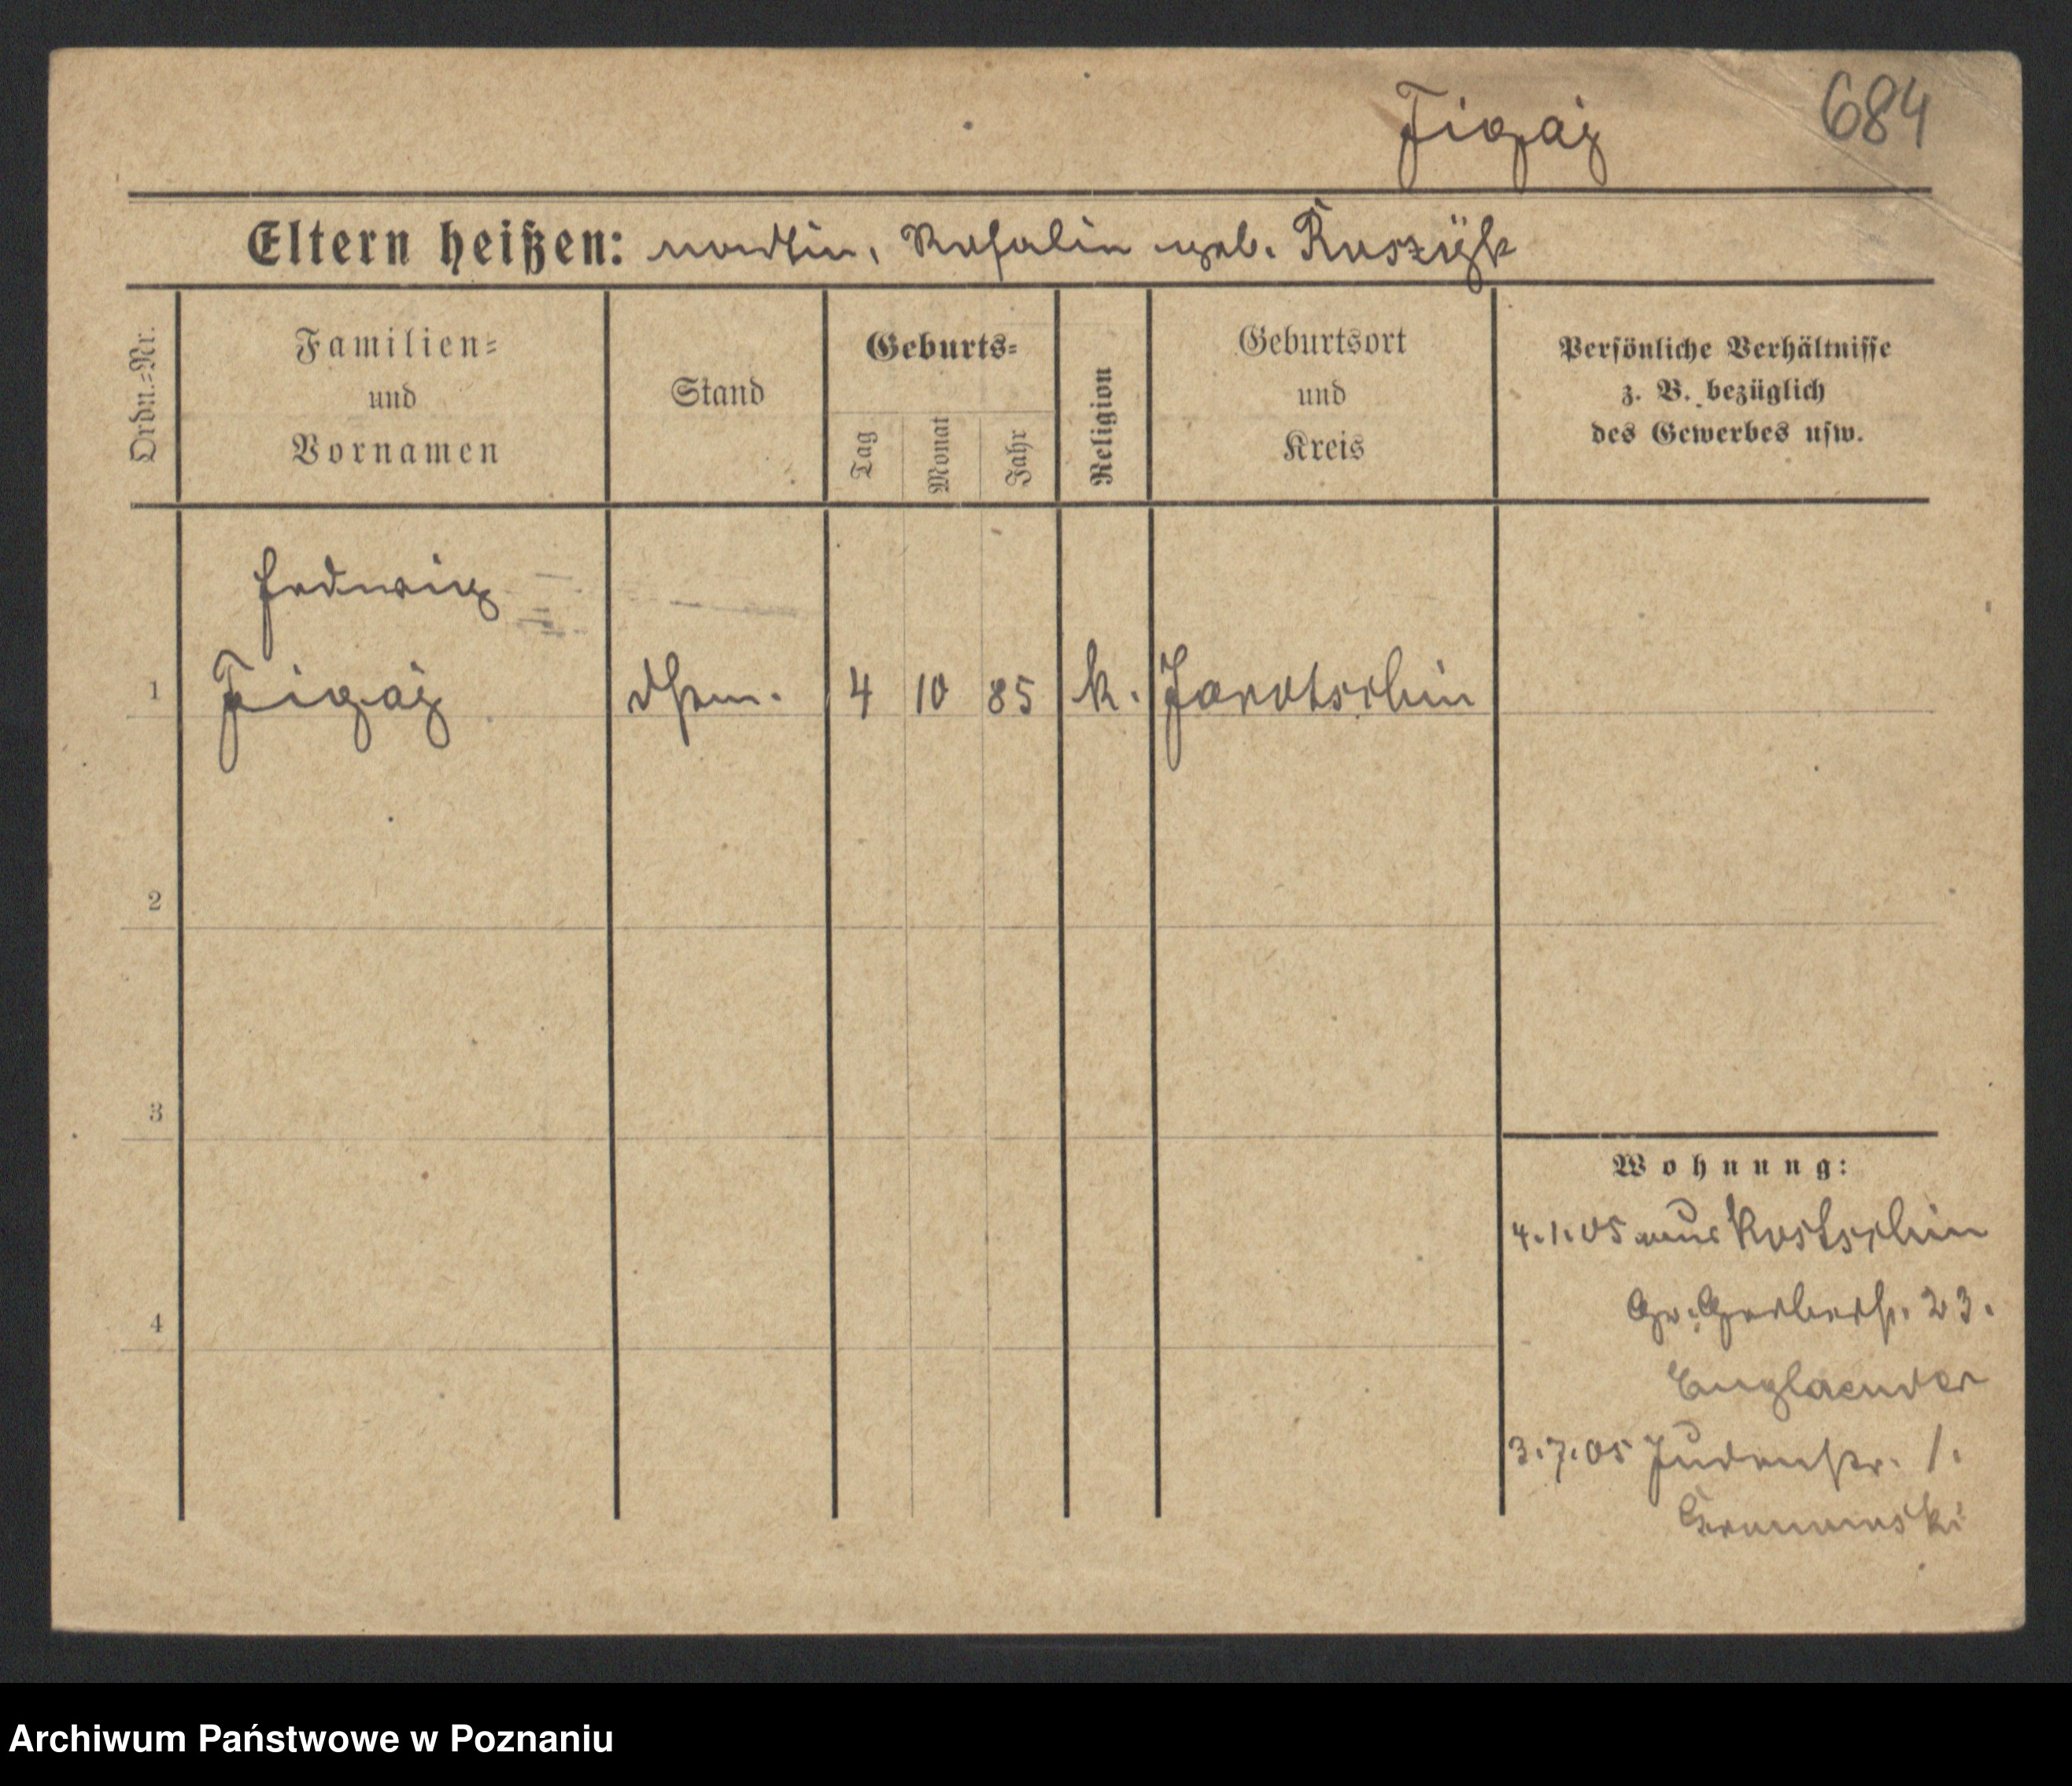 Figaj
684
Eltern heißen: Martin, Rosalie geb. Ruszÿk
Ordn.=Nr.
Familien=
und
Vornamen
Stand
Geburts=
Tag
Monat
Jahr
Religion
Geburtsort
und
Kreis
Persönliche Verhältnisse
z. B. bezüglich
des Gewerbes usw.
Hedwig
1 Figaj 4 10 85 k. Jarotschin
2
3
4
Wohnung:
4.1.05 aus Kostschin
Gr. Gerberstr. 23.
Englaender
3.7.05 Judenstr. 1.
Archiwum Państwowe w Poznaniu